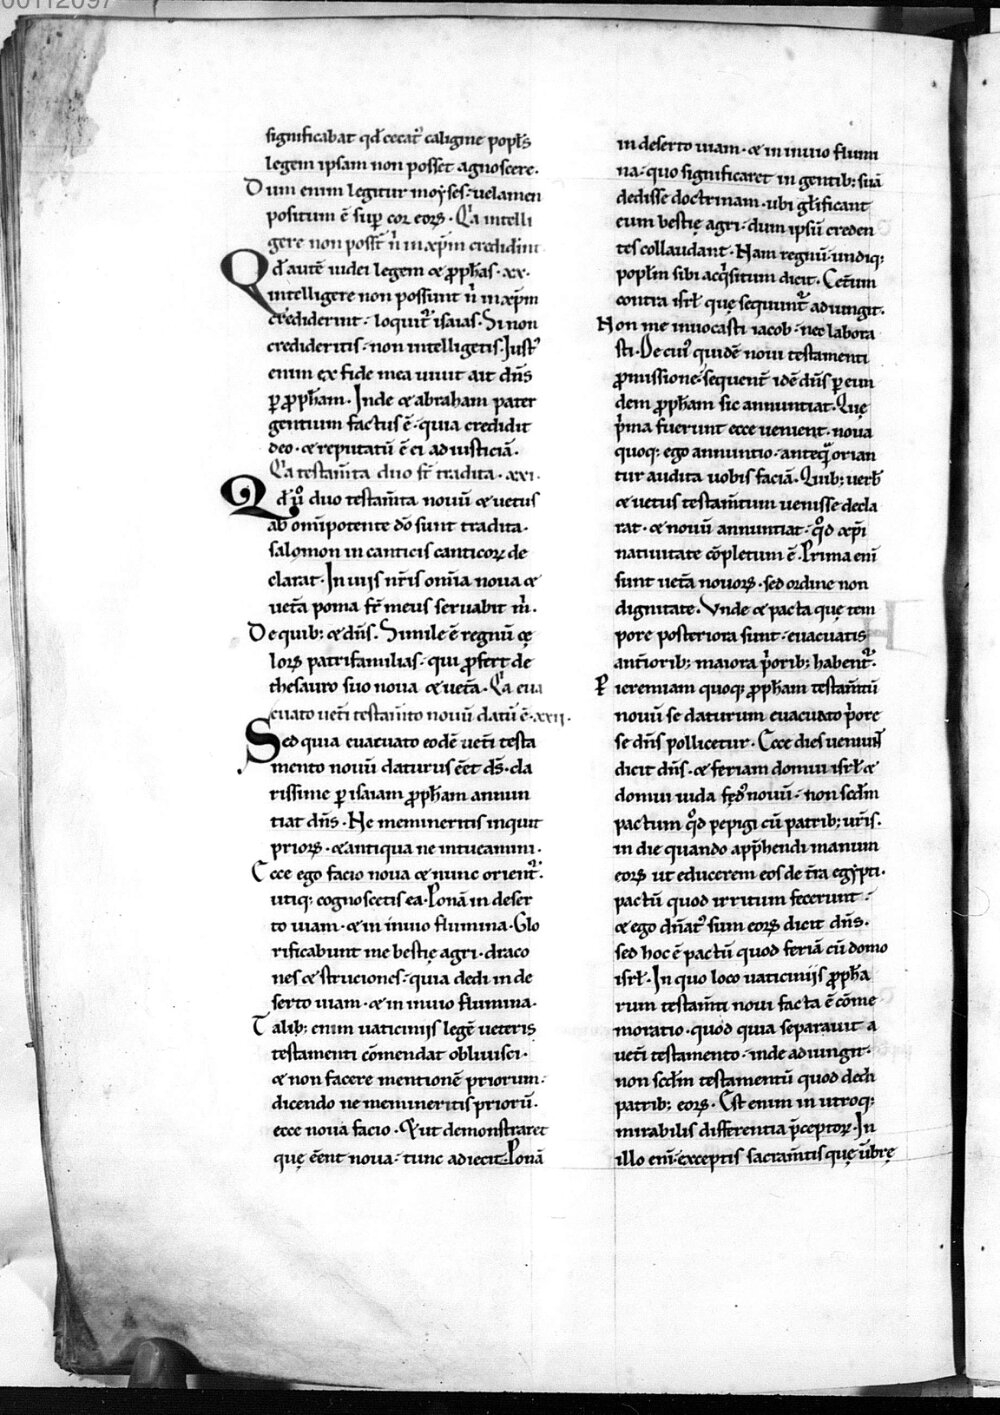 00112097
significabat qd cecatꝰ caligine popl̓s
legem ipsam non posset agnoscere.
Dum enim legitur moyses: uelamen
positum ē sup cor eoꝝ. Qa intelli
gere non posst̄ n̄ in xp̄m credidint
Qd autē iudei legem ⁊ ꝓph̄as. xx.
intelligere non possunt n̄ in xp̄m
crediderint: loquit᷑ isaias. Si non
credideritis: non intelligetis. Iustꝰ
enim ex fide mea uiuit ait dn̄s
ꝑ ꝓph̄am. Inde ⁊ abraham pater
gentium factus ē: quia credidit
deo. ⁊ reputatū ē ei ad iusticiā.
Qa testam̄ta duo st̄ tradita. xxi.
Qd u̓o duo testam̄ta nouū ⁊ uetus
ab omīpotente dō sunt tradita.
salomon in canticis canticoꝝ de
clarat. In uiis nr̄is om̄ia noua ⁊
uet̄a poma fr̄ meus seruabit m̓.
De quib; ⁊ dn̄s. Simile ē regnū cę
loꝝ patrifamilias: qui ꝓfert de
thesauro suo noua ⁊ uet̄a. Qa eua
cuato uet̄i testam̄to nouū datū ē. xxii.
Sed quia euacuato eodē uet̄i testa
mento nouū daturus eēt ds̄. cla
rissime ꝑ isaiam ꝓph̄am annun
tiat dn̄s. Ne memineritis inquit
prioꝝ. ⁊ antiqua ne intueamini.
Ecce ego facio noua ⁊ nunc orient᷑.
utiq; cognoscetis ea. Ponā in deser
to uiam. ⁊ in inuio flumina. Glo
rificabunt me bestię agri. draco
nes ⁊ struciones: quia dedi in de
serto uiam. ⁊ in inuio flumina.
Talib; enim uaticiniis legē ueteris
testamenti cōmendat obliuisci.
⁊ non facere mentionē priorum:
dicendo ne memineritis priorū.
ecce noua facio. Et ut demonstraret
quę eēnt noua: tunc adiecit. Ponā
in deserto uiam. ⁊ in inuio flumi
na: quo significaret in gentib; suā
dedisse doctrinam. ubi gl̓ificant
eum bestię agri: dum ipsū creden
tes collaudant. Nam regnū undiq;
popl̓m sibi acq̓situm dicit. Cet̄um
contra isrł quę sequunt᷑ adiungit.
Non me inuocasti iacob: nec labora
sti. De cuiꝰ quidē noui testamenti
ꝓmissione: sequent̓ idē dn̄s ꝑ eun
dem ꝓph̄am sic annuntiat. Quę
p̓ma fuerunt ecce uenient. noua
quoq; ego annuntio. anteq̄ orian
tur audita uobis faciā. Quib; uerb̓
⁊ uetus testam̄tum uenisse decla
rat. ⁊ nouū annuntiat: qd̓ ⁊ xp̄i
natiuitate cōpletum ē. Prima enī
sunt uet̄a nouoꝝ. sed ordine non
dignitate. Vnde ⁊ pacta quę tem
pore posteriora sunt: euacuatis
ant̄iorib; maiora p̓orib; habent᷑.
P ieremiam quoq; ꝓph̄am testam̄tū
nouū se daturum euacuato p̓ore
se dn̄s pollicetur. Ecce dies ueniunt
dicit dn̄s. ⁊ feriam domui isrł ⁊
domui iuda fędꝰ nouū: non scd̄m
pactum qd̓ pepigi cū patrib; ur̄is.
in die quando app̄hendi manum
eoꝝ ut educerem eos de t̄ra egypti.
pactū quod irritum fecerunt:
⁊ ego dn̄atꝰ sum eoꝝ dicit dn̄s.
sed hoc ē pactū quod feriā cū domo
isrł. In quo loco uaticiniis ꝓph̄a
rum testam̄ti noui facta ē cōme
moratio. quod quia separauit a
uet̄i testamento: inde adiungit.
non scd̄m testamentū quod dedi
patrib; eoꝝ. Est enim in utroq;
mirabilis differentia p̄ceptoꝝ. In
illo enī: exceptis sacram̄tis quę ūbrę